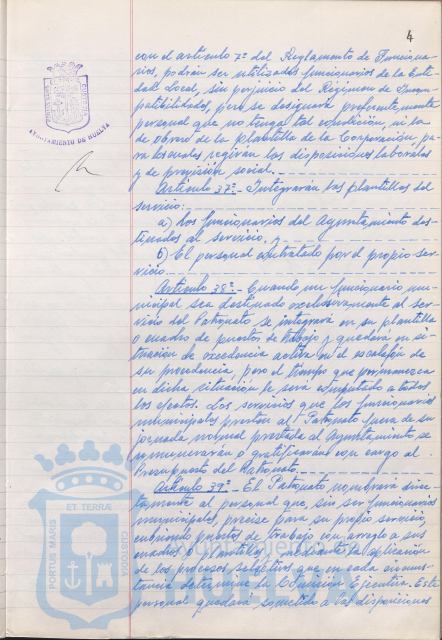 4
con el artículo 7º del Reglamento de Funciona-
rios, podrán ser utilizados funcionarios de la Enti-
dad Local, sin perjuicio del Régimen de Incom-
patibilidades, pero se designará preferentemente
personal que no tenga tal condición, ni la
de obrero de la plantilla de la Corporación, pa-
ra los cuales regirán las disposiciones laborales
y de previsión social.
Artículo 37º.- Integrarán las plantillas del
servicio:
a) Los funcionarios del Ayuntamiento des-
tinados al servicio, y
b) El personal contratado por el propio ser-
vicio.
Artículo 38º.- Cuando un funcionario mu-
nicipal sea destinado exclusivamente al ser-
vicio del Patronato se integrará en su plantilla
o cuadro de puestos de trabajo y quedará en si-
tuación de excedencia activa en el escalafón de
su procedencia, pero el tiempo que permanezca
en dicha situación le será computado a todos
los efectos. Los servicios que los funcionarios
municipales presten al Patronato fuera de su
jornada normal prestada al Ayuntamiento, se
remunerarán o gratificarán con cargo al
Presupuesto del Patronato.
Artículo 39º.- El Patronato nombrará direc-
tamente al personal que, sin ser funcionarios
municipales, precise para su propio servicio,
cubriendo puestos de trabajo con arreglo a sus
cuadros o plantillas, mediante la aplicación
de los procesos selectivos que en cada circuns-
tancia determine la Comisión Ejecutiva. Este
personal quedará sometido a las disposiciones
AYUNTAMIENTO DE HUELVA
PORTUS MARIS ET TERRAE CUSTODIA
HUELVA